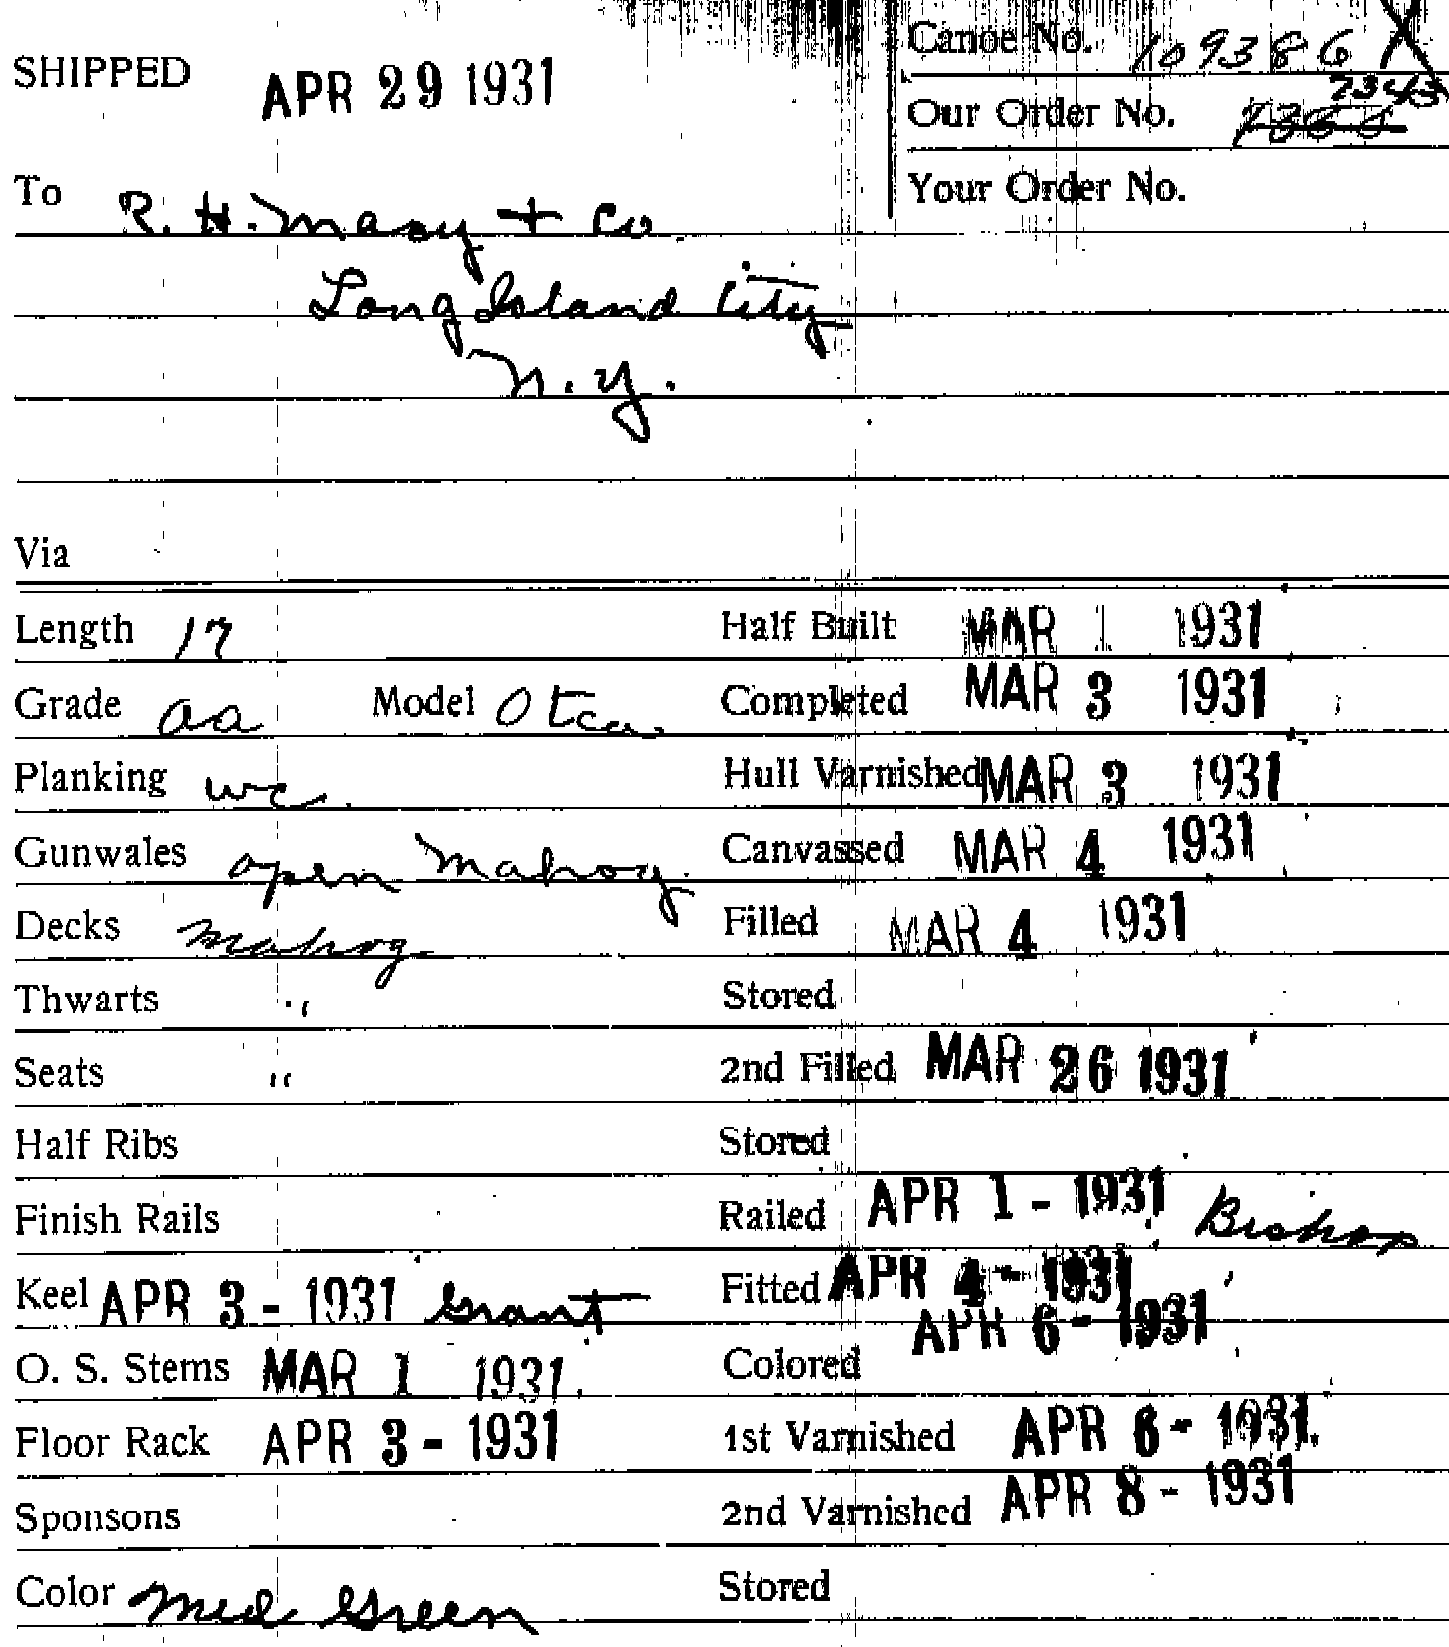 Canoe No. 109386 X
SHIPPED APR 29 1931
7343
Our Order No.
To R. H. Macy + Co.
Your Order No.
Long Island City
N.Y.
Via
Length 17 Half Built MAR 1 1931
Grade aa Model Otca Completed MAR 3 1931
Planking wc. Hull Varnished MAR 3 1931
Gunwales open Mahog. Canvassed MAR 4 1931
Decks Mahog Filled MAR 4 1931
Thwarts " Stored
Seats " 2nd Filled MAR 26 1931
Half Ribs Stored
Finish Rails Railed APR 1 - 1931 Bishop
Keel APR 3 - 1931 Grant Fitted APR 4 - 1931
APR 6 - 1931
O. S. Stems MAR 1 1931 Colored
Floor Rack APR 3 - 1931 1st Varnished APR 6 - 1931
Sponsons 2nd Varnished APR 8 - 1931
Color Med Green Stored